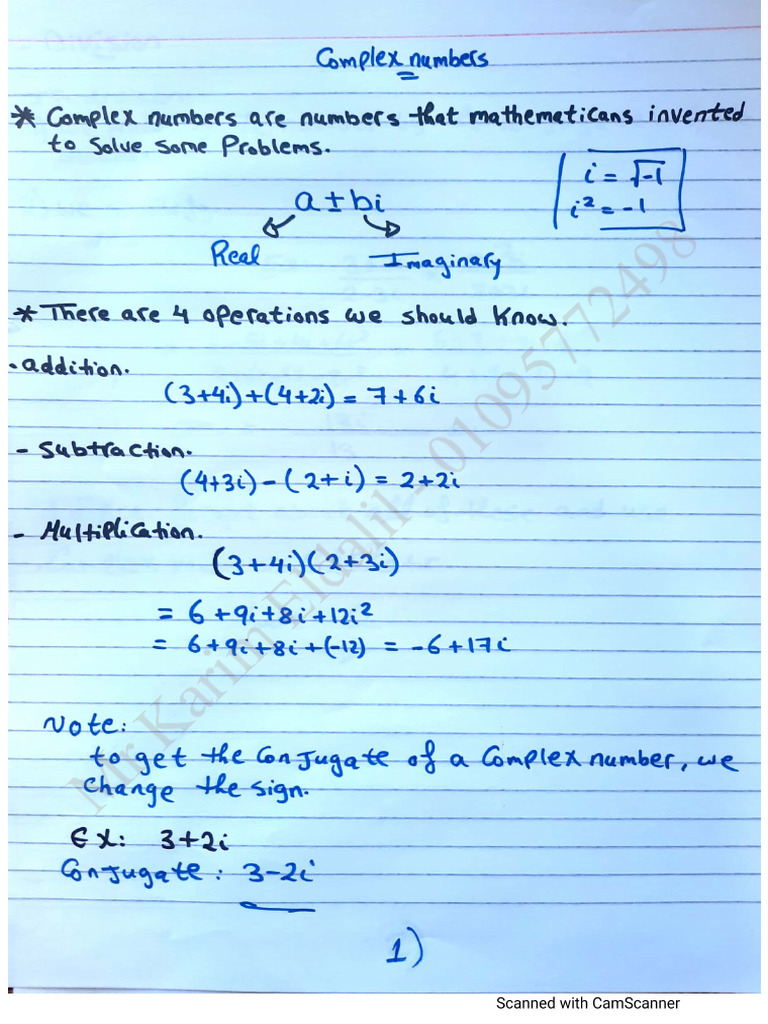 Complex numbers
* Complex numbers are numbers that mathematicans invented
to solve some Problems.
i = √-1
i² = -1
a ± bi
Real
Imaginary
* There are 4 operations we should know.
- addition.
(3+4i)+(4+2i) = 7+6i
- Subtraction.
(4+3i)-(2+i) = 2+2i
- Multiplication.
(3+4i)(2+3i)
= 6+9i+8i+12i²
= 6+9i+8i+(-12) = -6+17i
Note:
to get the Conjugate of a Complex number, we
change the sign.
Ex: 3+2i
Conjugate: 3-2i
1)
Mr Karim Eldalil - 01095772498
Scanned with CamScanner